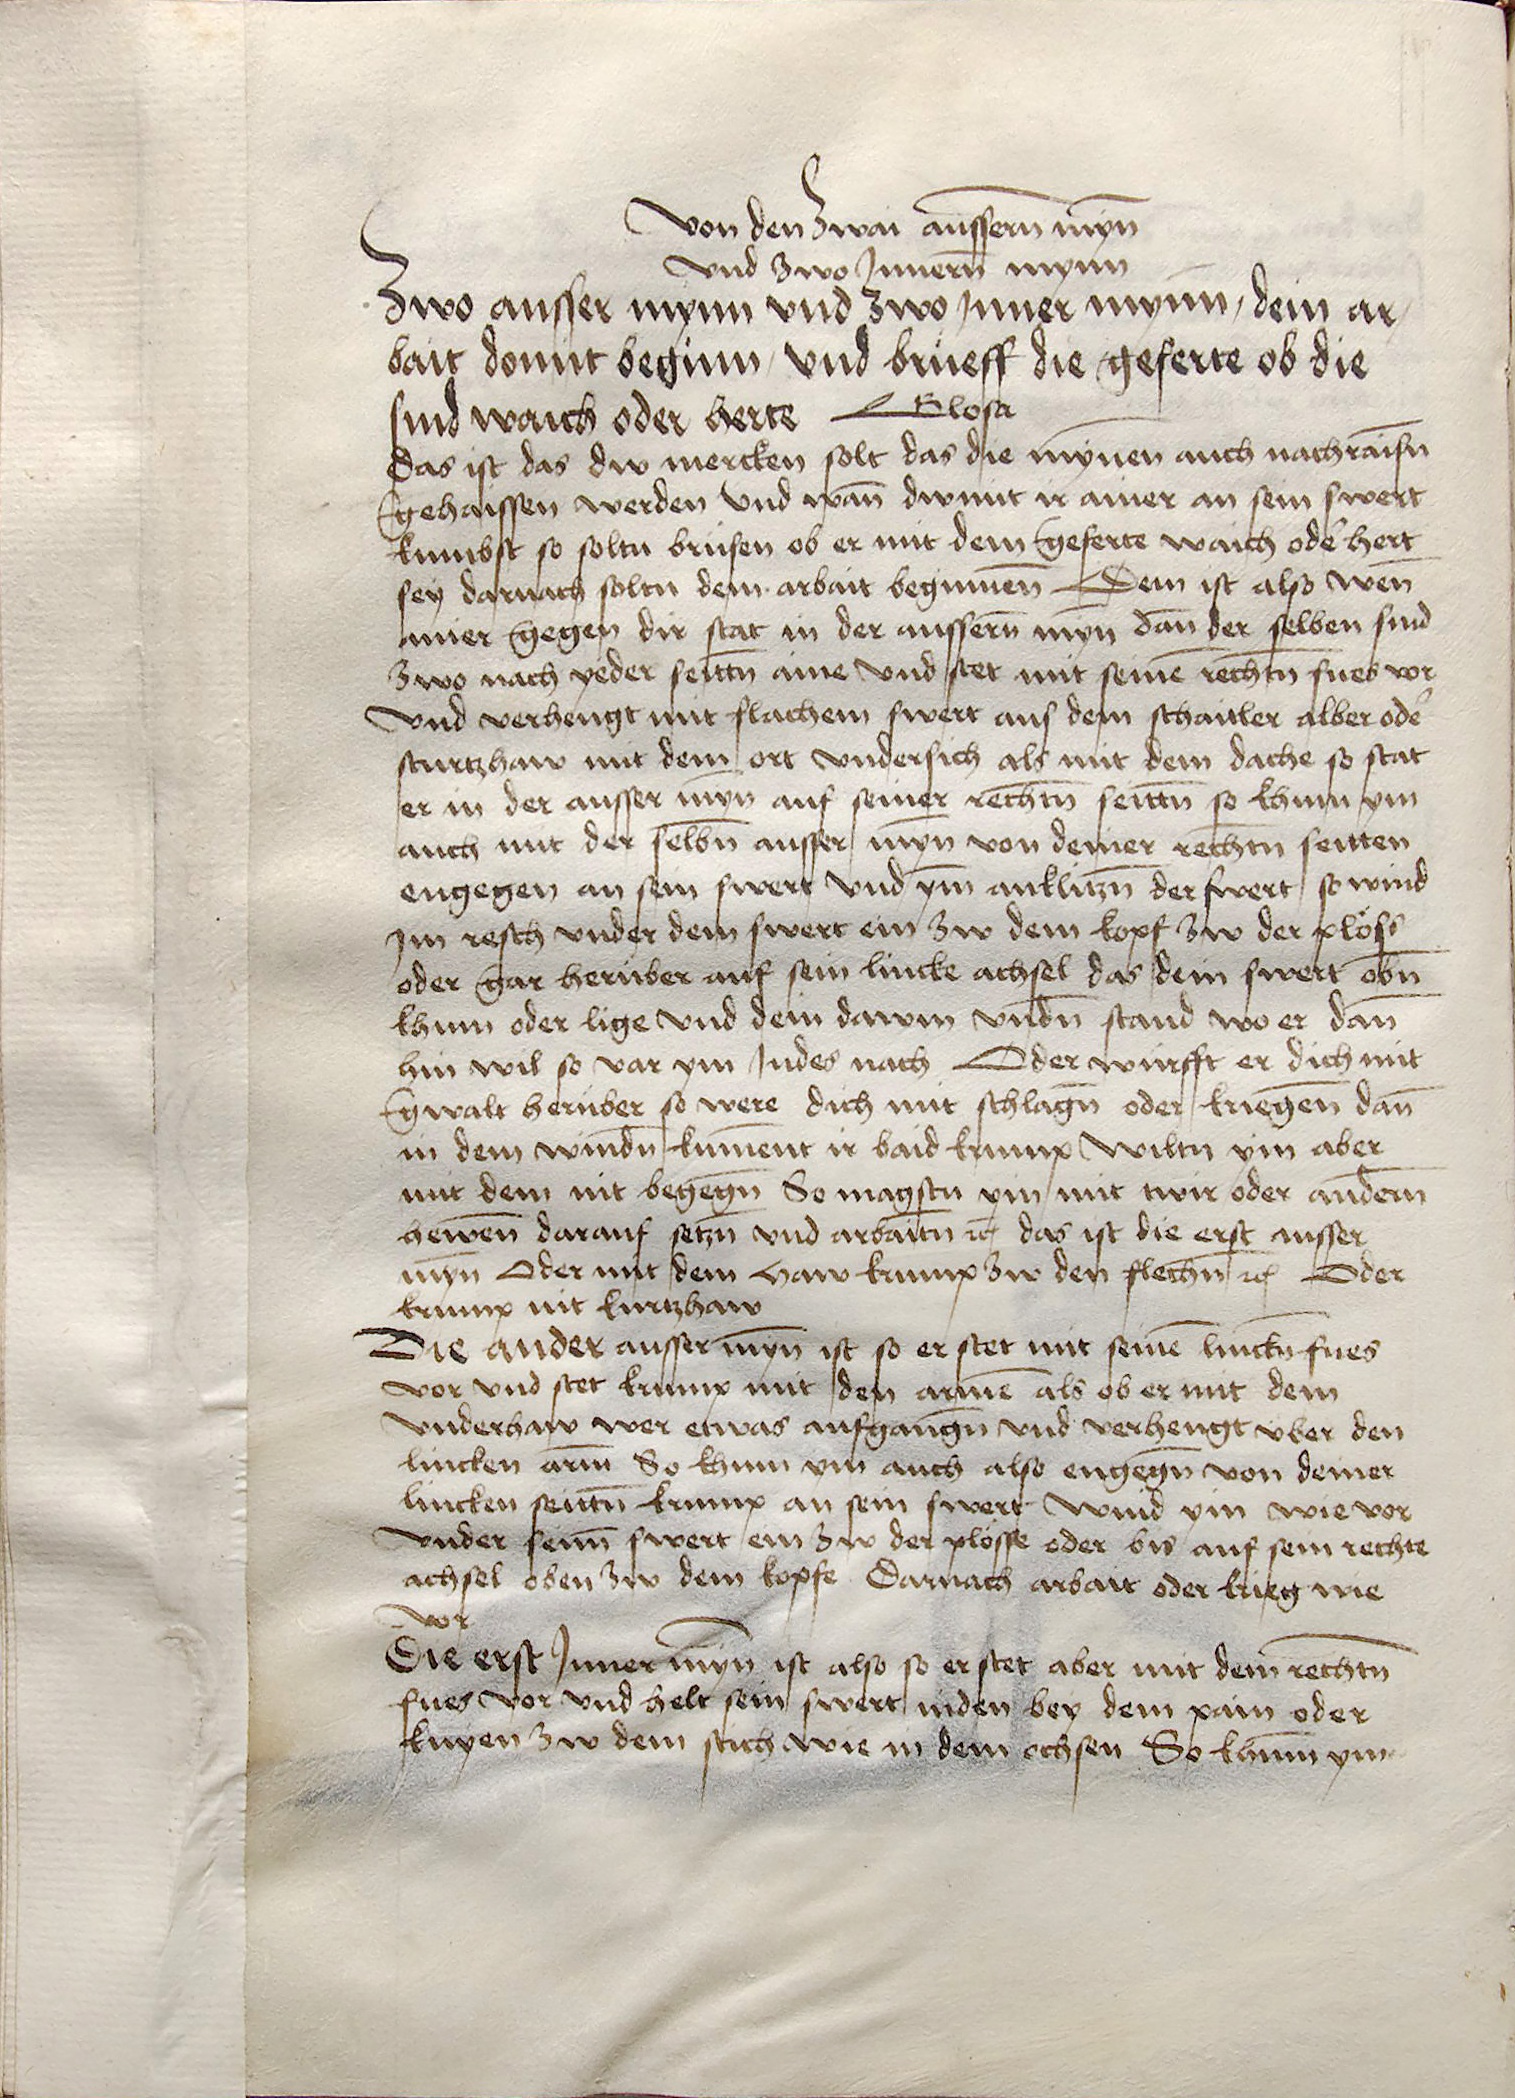 Von den Zwai aussern mȳn
vnd zwo Jnnern̄ mynn
Zwo ausser mynn vnd zwo Jnner mynn / dein ar/
bait domit beginn / vnd brueff die geferte ob die
sind waich oder herte Glosa
Das ist das dw mercken solt das die mȳnen auch nachraisn̄
gehaissen werden vnd wan̄ dw mit ir ainer an sein swert
kumbst so soltu brufen ob er mit dem geferte waich ode͛ hert
sey darnach soltu dein arbait beginnen̄ Dem ist also wen̄
ainer gegen dir stat in der aussern̄ mȳn dan̄ der selben sind
zwo nach yeder seittn̄ aine vnd stet mit seinē rechtn̄ fues vor
vnd verhengt mit flachem swert aus dem schaitler alber ode͛
sturtzhaw mit dem ort vndersich als mit dem dache so stat
er in der ausser mȳn auf seiner rechtn̄ seittn̄ so khum ym
auch mit der selbn̄ ausser mȳn von deiner rechtn̄ seitten
engegen an sein swert vnd ym̄ anklitzn̄ der swert so wind
Jm resch vnder dem swert ein zw dem kopf zw der plöss
oder gar herüber auf sein lincke achsel das dein swert obn̄
khum oder lige vnd dein dawm vndn̄ stand wo er dan̄
hin wil so var ym Jndes nach Oder wurfft er dich mit
gwalt herüber so were dich mit schlagn̄ oder kriegen̄ dan̄
in dem windn̄ kument ir baid krump Wiltu ym aber
mit dem nit begegn̄ So magstu ym mit twir oder andern̄
hewen̄ darauf setzn̄ vnd arbaitn̄ ꝛc das ist die erst ausser
mȳn Oder mit dem haw krump zw den flechn̄ ꝛc Oder
krump nit kurtzhaw
Die ander ausser mȳn ist so er stet mit seinē linckn̄ fues
vor vnd stet krump mit den armē als ob er mit dem
vnderhaw wer etwas aufgangn̄ vnd verhengt vber den
lincken arm̄ So khum ym auch also engegn̄ von deiner
lincken seittn̄ krump an sein swert Wind ym wie vor
vnder seinn̄ swert ein zw der plösse oder bis auf sein rechte
achsel oben zw dem kopfe Darnach arbait oder krieg wie
vor
Die erst Jnner mȳn ist also so er stet aber mit dem rechtn̄
fues vor vnd helt sein swert niden bey dem pain oder
knyen zw dem stich wie in dem ochsen So khum ym